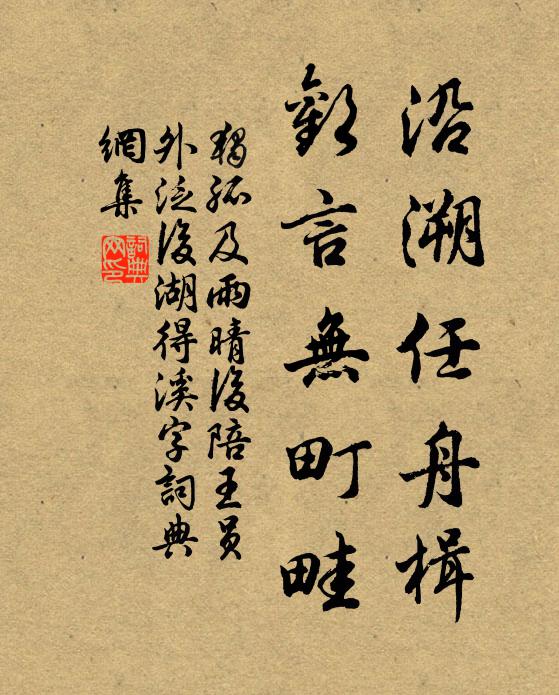 沿溯任舟楫
歡言無町畦
獨孤及雨晴後陪王員
外泛後湖得溪字詞典
網集
詞典
网印